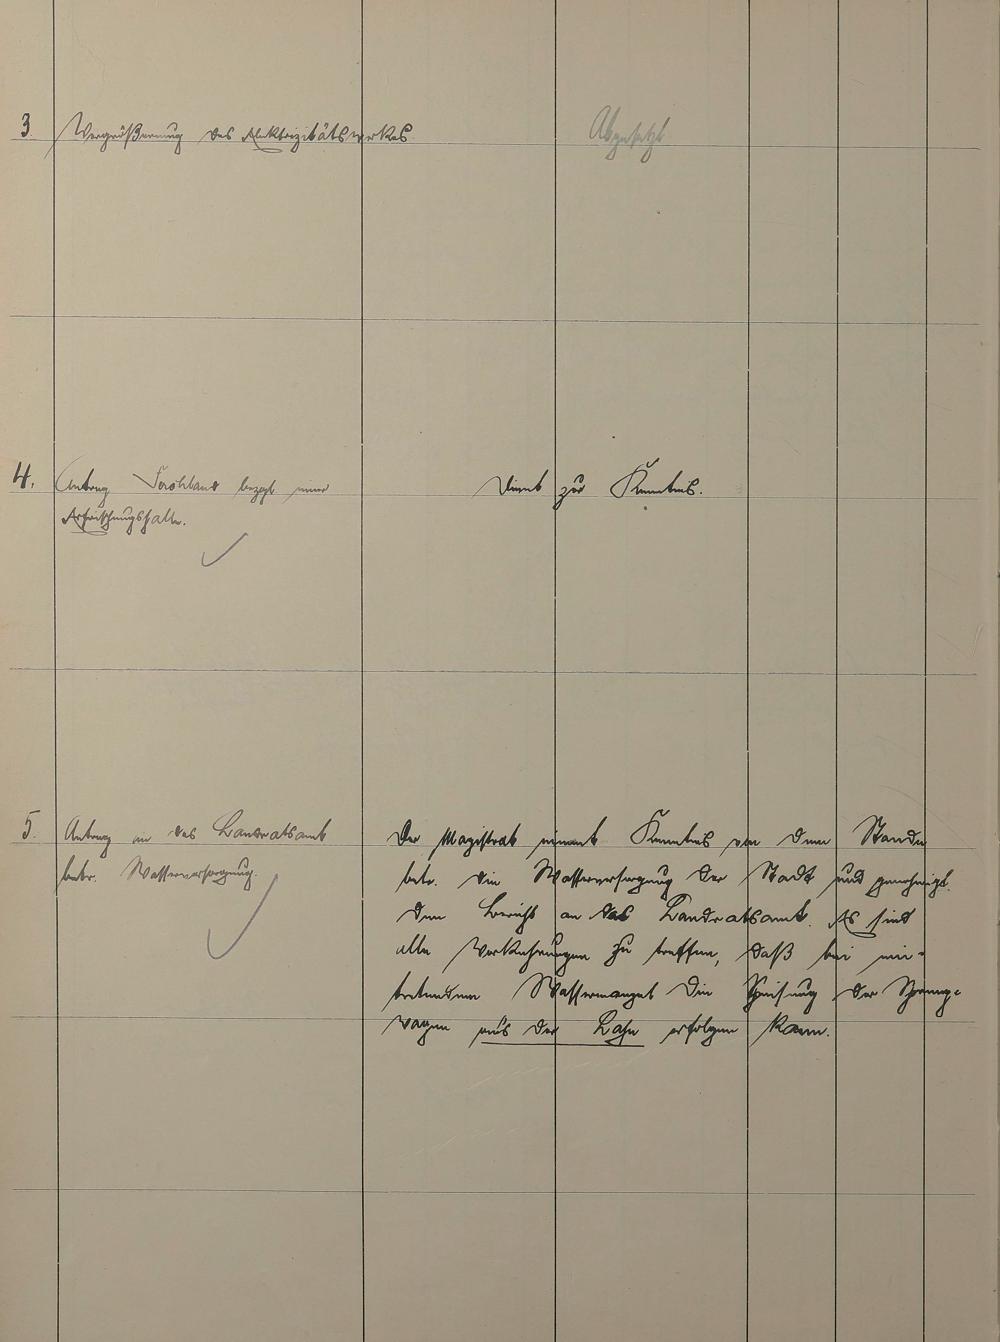 3. Vergrößerung des Elektrizitätswerkes
Abgesetzt
4. Antrag bezgl. einer
Erfrischungshalle.
Dient zur Kenntnis.
5. Antrag an das Landratsamt
betr. Wasserversorgung.
Der Magistrat nimmt Kenntnis von dem Stande
betr. die Wasserversorgung der Stadt und genehmigt
den Bericht an das Landratsamt. Es sind
alle Vorkehrungen zu treffen, daß bei ein-
tretendem Wassermangel die Speisung der Spreng-
wagen aus der Lahn erfolgen kann.